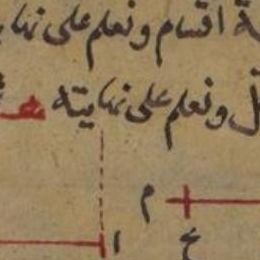 اقسام ونعلم على نها
ونعلم على نهايته
م
ا
خ